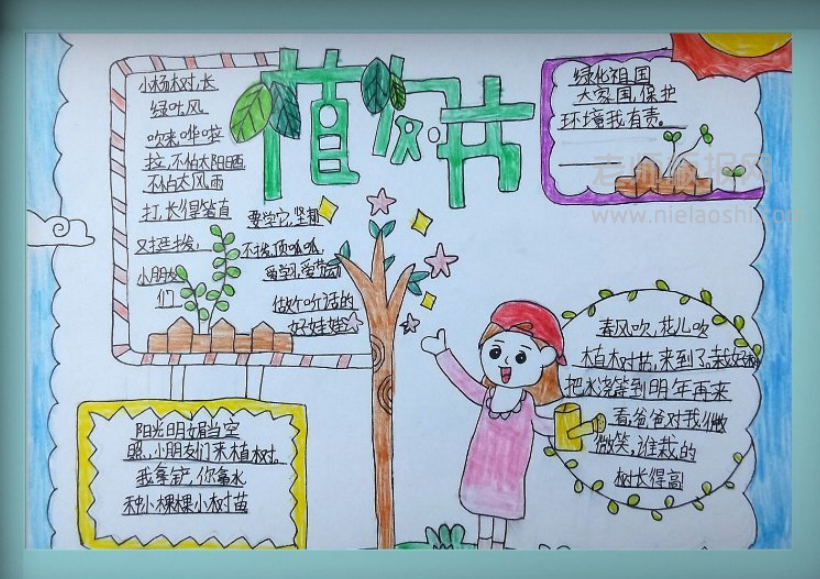 植树节
小杨树,长
绿叶风
吹来哗啦
拉,不怕太阳晒
不怕大风雨
打,长得笔直
又挺拔,
小朋友
们
要学它,坚韧
不拔,顶呱呱,
爱学习,爱劳动
做个听话的
好娃娃
绿化祖国
大家园,保护
环境我有责。
老师板报网
www.nielaoshi.com
春风吹,花儿吹
植树苗,来到了,栽好树
把水浇等到明年再来
看,爸爸对我微
微笑,谁栽的
树长得高
阳光明媚当空
照,小朋友们来植树,
我拿铲,你拿水
种小棵棵小树苗